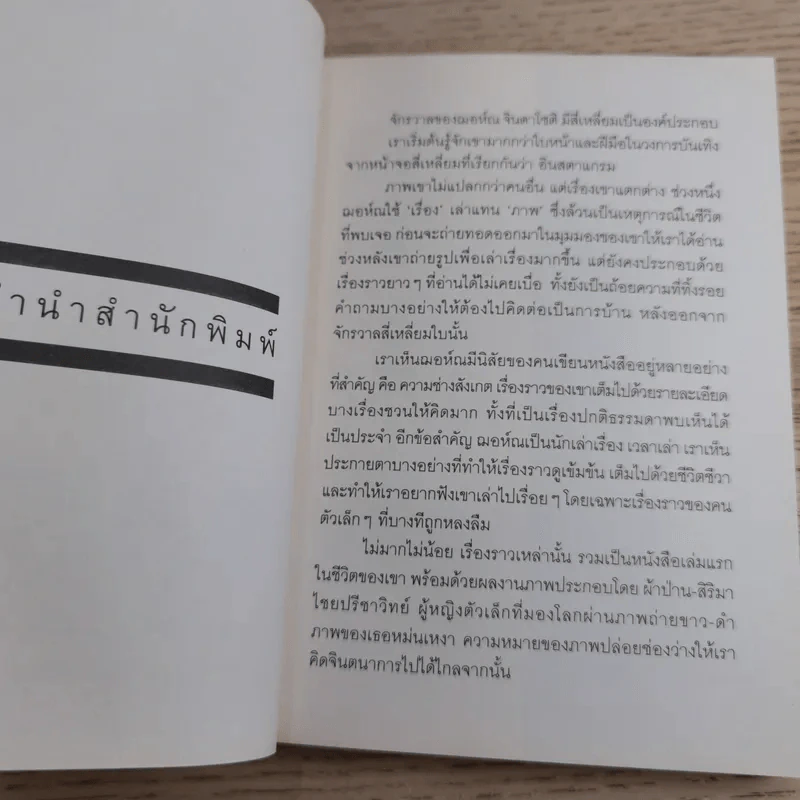 คำนำสำนักพิมพ์
จักรวาลของฌอห์ณ จินดาโชติ มีสี่เหลี่ยมเป็นองค์ประกอบ
เราเริ่มต้นรู้จักเขามากกว่าใบหน้าและฝีมือในวงการบันเทิง
จากหน้าจอสี่เหลี่ยมที่เรียกกันว่า อินสตาแกรม
ภาพเขาไม่แปลกกว่าคนอื่น แต่เรื่องเขาแตกต่าง ช่วงหนึ่ง
ฌอห์ณใช้ 'เรื่อง' เล่าแทน 'ภาพ' ซึ่งล้วนเป็นเหตุการณ์ในชีวิต
ที่พบเจอ ก่อนจะถ่ายทอดออกมาในมุมมองของเขาให้เราได้อ่าน
ช่วงหลังเขาถ่ายรูปเพื่อเล่าเรื่องมากขึ้น แต่ยังคงประกอบด้วย
เรื่องราวยาวๆ ที่อ่านได้ไม่เคยเบื่อ ทั้งยังเป็นถ้อยความที่ทิ้งรอย
คำถามบางอย่างให้ต้องไปคิดต่อเป็นการบ้าน หลังออกจาก
จักรวาลสี่เหลี่ยมใบนั้น
เราเห็นฌอห์ณมีนิสัยของคนเขียนหนังสืออยู่หลายอย่าง
ที่สำคัญ คือ ความช่างสังเกต เรื่องราวของเขาเต็มไปด้วยรายละเอียด
บางเรื่องชวนให้คิดมาก ทั้งที่เป็นเรื่องปกติธรรมดาพบเห็นได้
เป็นประจำ อีกข้อสำคัญ ฌอห์ณเป็นนักเล่าเรื่อง เวลาเล่า เราเห็น
ประกายตาบางอย่างที่ทำให้เรื่องราวดูเข้มข้น เต็มไปด้วยชีวิตชีวา
และทำให้เราอยากฟังเขาเล่าไปเรื่อยๆ โดยเฉพาะเรื่องราวของคน
ตัวเล็กๆ ที่บางทีถูกหลงลืม
ไม่มากไม่น้อย เรื่องราวเหล่านั้น รวมเป็นหนังสือเล่มแรก
ในชีวิตของเขา พร้อมด้วยผลงานภาพประกอบโดย ผ้าป่าน-สิริมา
ไชยปรีชาวิทย์ ผู้หญิงตัวเล็กที่มองโลกผ่านภาพถ่ายขาว-ดำ
ภาพของเธอหม่นเหงา ความหมายของภาพปล่อยช่องว่างให้เรา
คิดจินตนาการไปได้ไกลจากนั้น